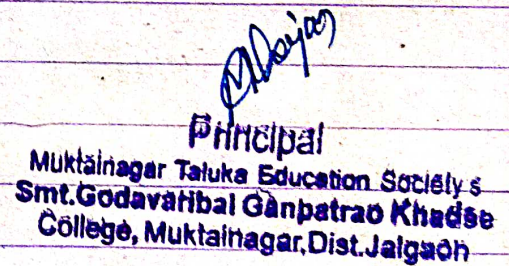 Principal
Muktainagar Taluka Education Society's
Smt.Godavaribai Ganpatrao Khadse
College, Muktainagar,Dist.Jalgaon